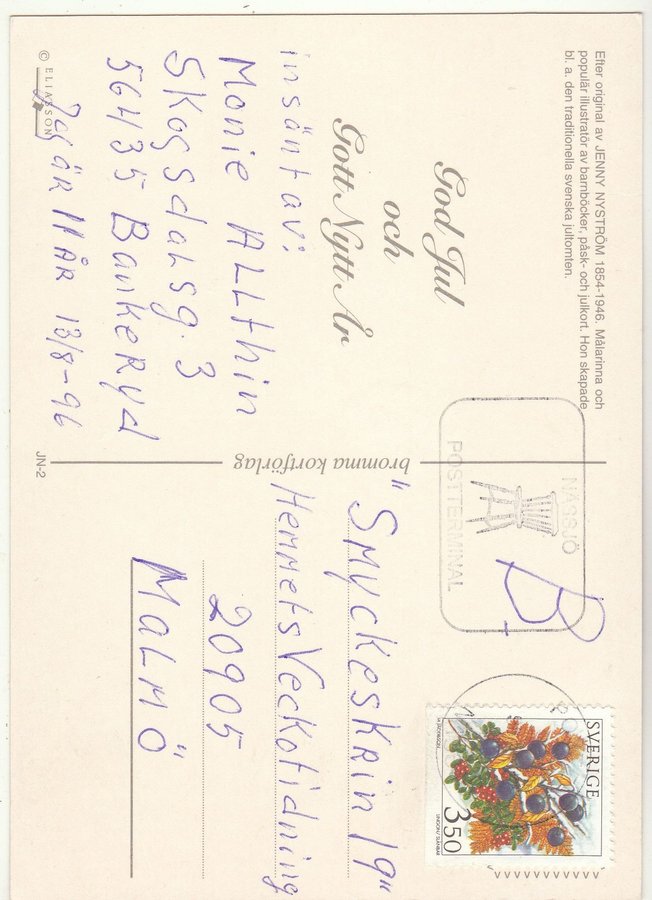 Efter original av JENNY NYSTRÖM 1854-1946. Målarinna och
populär illustratör av barnböcker, påsk- och julkort. Hon skapade
bl. a. den traditionella svenska jultomten.
God Jul
och
Gott Nytt År
insänt av:
Monie ALLthin
SKogsdalsg. 3
56435 BankeRyd
Jag är 11 ÅR 13/8-96
© ELIASSON
JN-2
bromma kortförlag
NÄSSJÖ
POSTTERMINAL
B
SVERIGE
3,50
LINGON/ SLÅNBÄR
"SMyCKesKRin 19"
HemmetsVeckotidning
20905
MaLMÖ